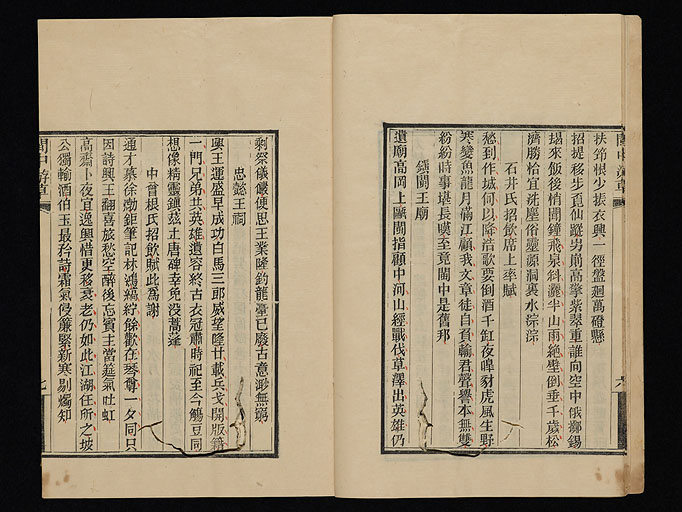 扶筇根少振衣興一徑盤迴萬磴懸
招提移步覓仙蹤男崩高擎紫翠重誰向空中俄擲錫
朅來飯後悄聞鐘飛泉斜灑半山雨絕壁倒垂千歲松
濟勝恰宜洗塵俗靈源洞裏水淙淙
石井氏招飲席上率賦
愁到作城何以降浩歌要倒酒千缸夜嘷豺虎風生野
寒變魚龍月滿江顧我文章徒自負輸君聲譽本無雙
紛紛時事堪長嘆至竟閩中是舊邦
鎮閩王廟
遺廟高岡上歐閩指顧中河山經戰伐草澤出英雄仍
剩祭儀儼便思王業隆釣龍臺已廢古意渺無窮
忠懿王祠
興王運盛早成功白馬三郎威望隆廿載兵戈開版籍
一門兄弟共英雄遺容終古衣冠肅時祀至今觴豆同
想像精靈鎮茲土唐碑幸免沒蒿蓬
中曾根氏招飲賦此為謝
通才慕徐渤鉅筆記林鴻縞紵餘歡在琴尊一夕同只
因詩興王翻喜旅愁空醉後忘賓主當筵氣吐虹
高齋卜夜宜逸興惜更移衰老仍如此江湖任所之坡
公獨輸酒伯玉最矜詩霜氣侵簾緊新寒剔燭知
閩中游草
七
閩中游草
六